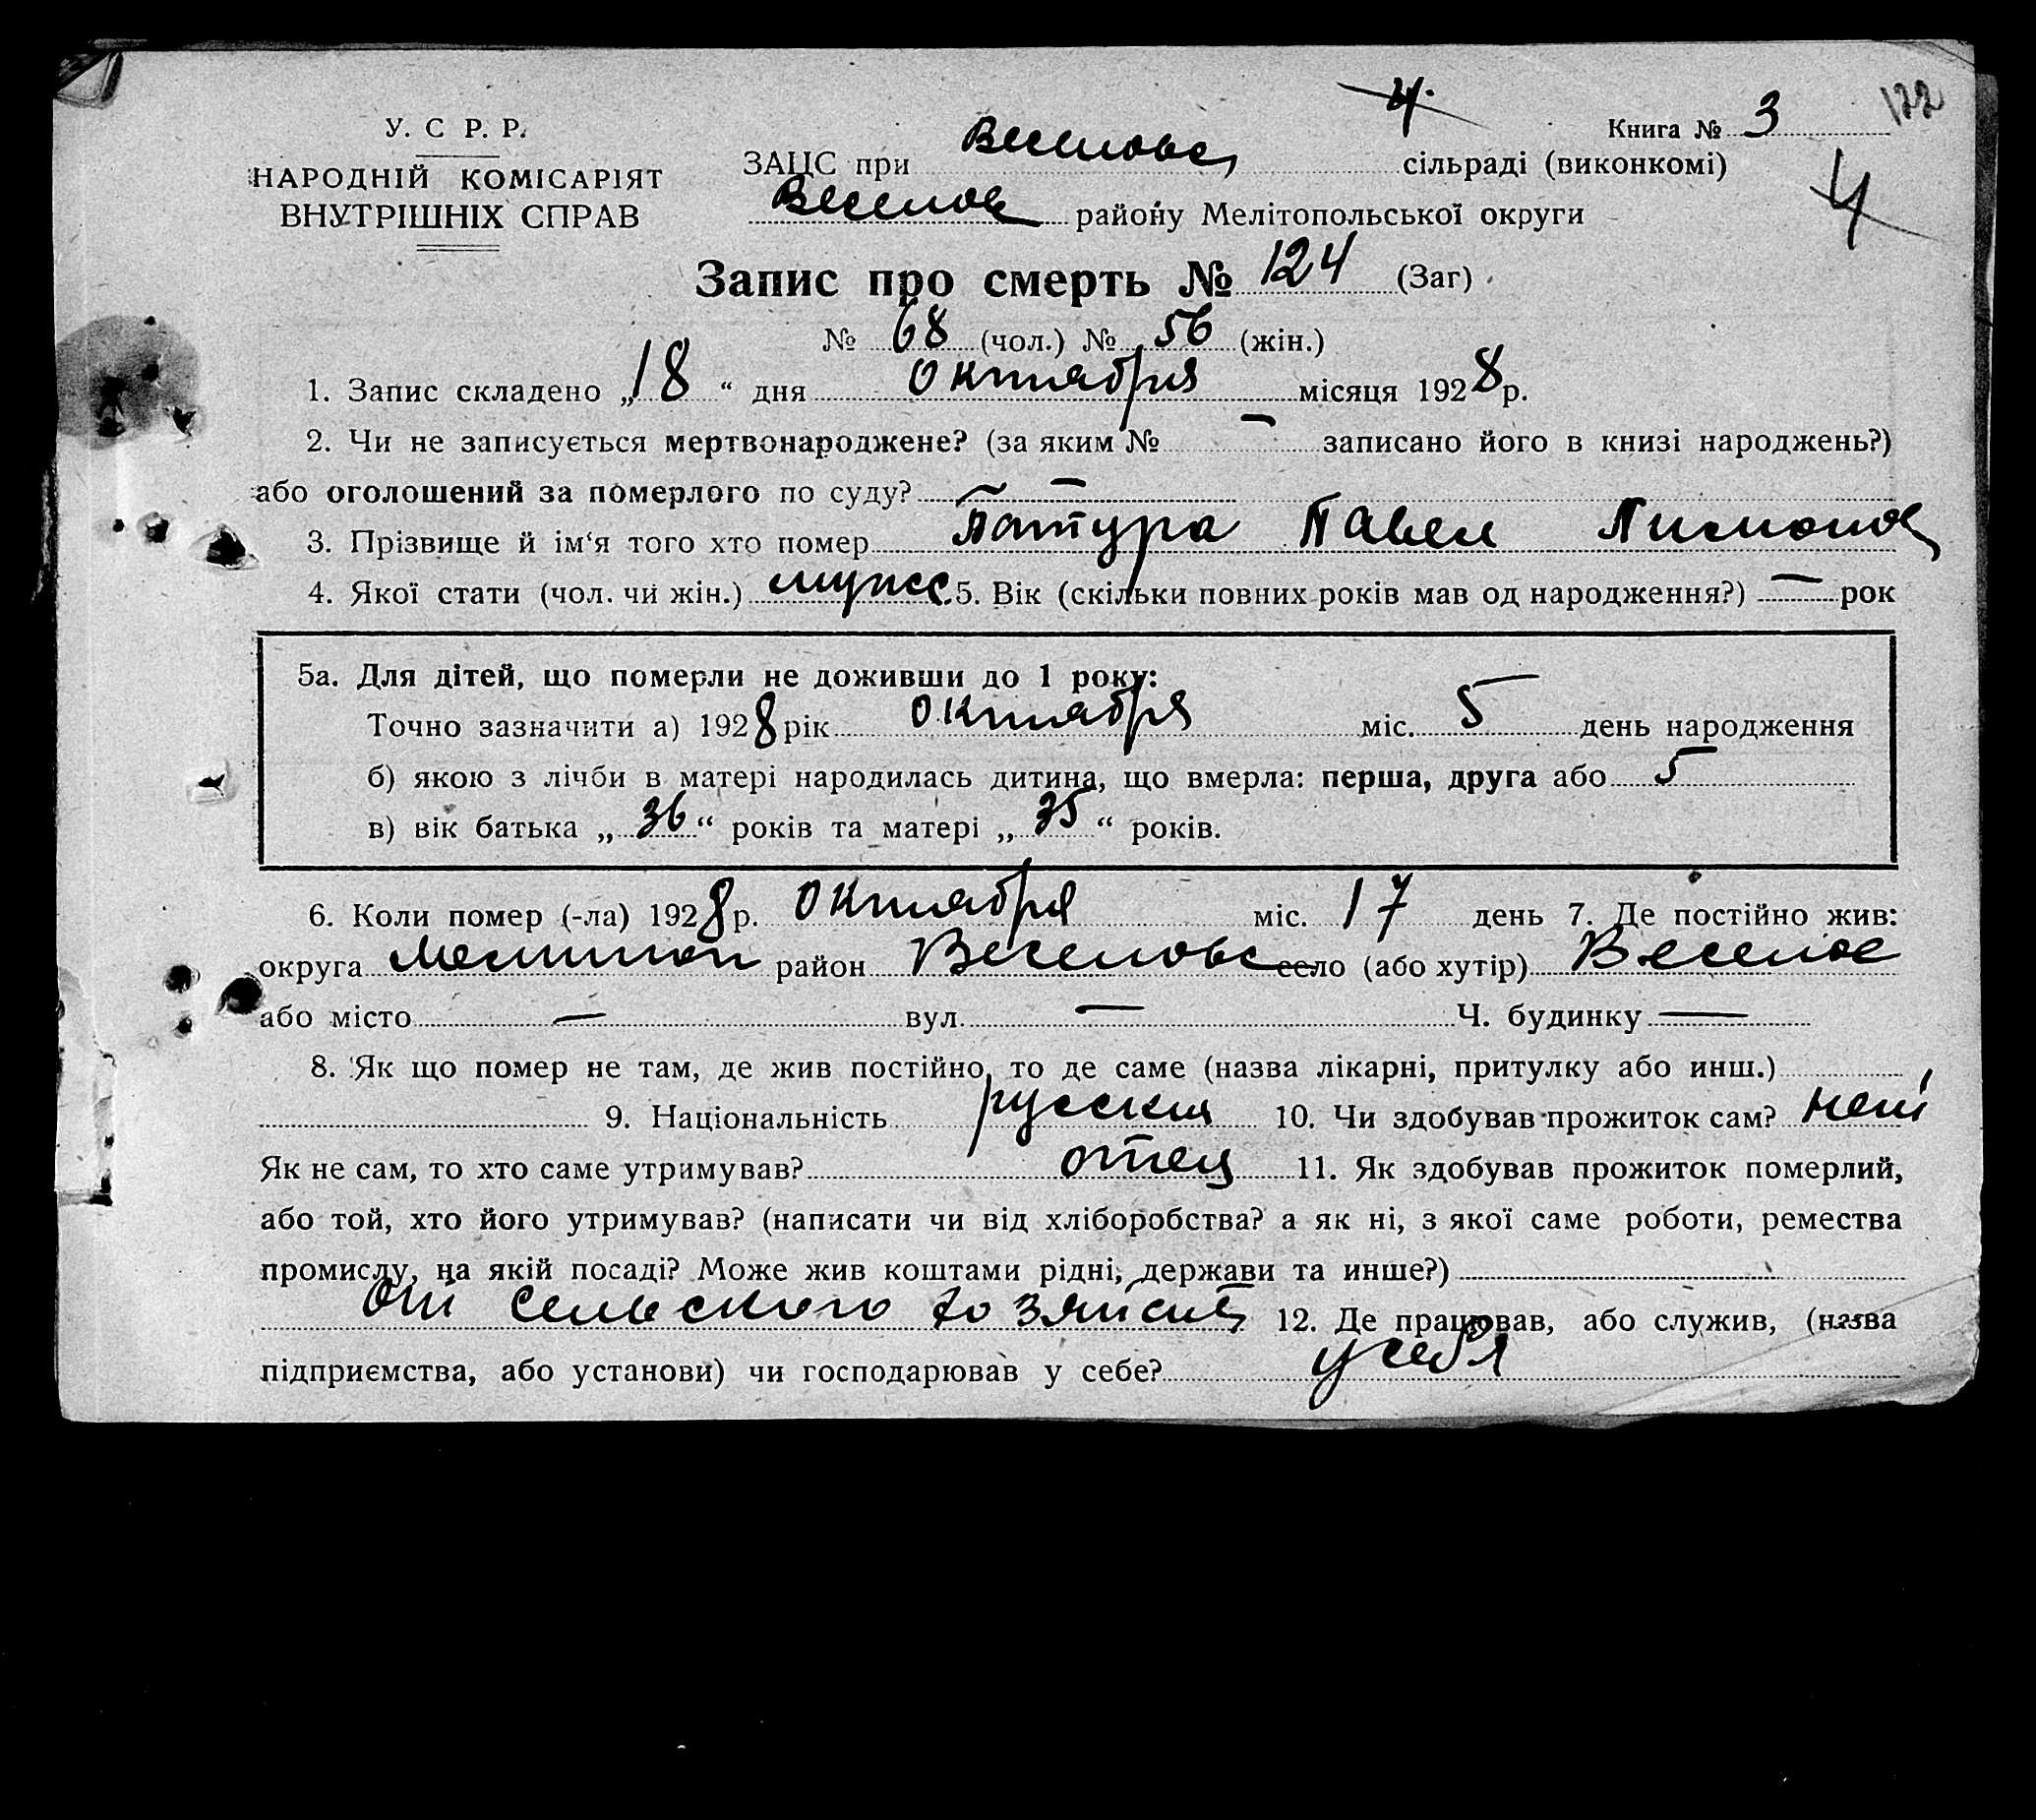 4.
122
У. С Р. Р.
Книга № 3
ЗАЦС при Веселовс, сільраді (виконкомі)
НАРОДНІЙ КОМІСАРІЯТ
4
ВНУТРІШНІХ СПРАВ
Веселов району Мелітопольської округи
Запис про смерть № 124 (Заг)
№ 68 (чол.) № 56 (жін.)
1. Запис складено „18“ дня Октября місяця 1928р.
2. Чи не записується мертвонароджене? (за яким № — записано його в книзі народжень?)
або оголошений за померлого по суду? —
3. Прізвище й ім‘я того хто помер Патура Павел
4. Якої стати (чол. чи жін.) мужс. 5. Вік (скільки повних років мав од народження?) — рок
5а. Для дітей, що померли не доживши до 1 року:
Точно зазначити а) 1928 рік Октября міс. 5 день народження
б) якою з лічби в матері народилась дитина, що вмерла: перша, друга або 5
в) вік батька „36“ років та матері „35“ років.
6. Коли помер (-ла) 1928р. Октября міс. 17 день 7. Де постійно жив:
округа Мелитоп район Веселовс село (або хутір) Веселое
або місто — вул. — Ч. будинку —
8. Як що помер не там, де жив постійно, то де саме (назва лікарні, притулку або инш.)
9. Національність русския 10. Чи здобував прожиток сам? нет
Як не сам, то хто саме утримував? отец 11. Як здобував прожиток померлий,
або той, хто його утримував? (написати чи від хліборобства? а як ні, з якої саме роботи, ремества
промислу, на якій посаді? Може жив коштами рідні, держави та инше?)
От сельского хозяйств 12. Де працював, або служив, (назва
підприємства, або установи) чи господарював у себе? у себя